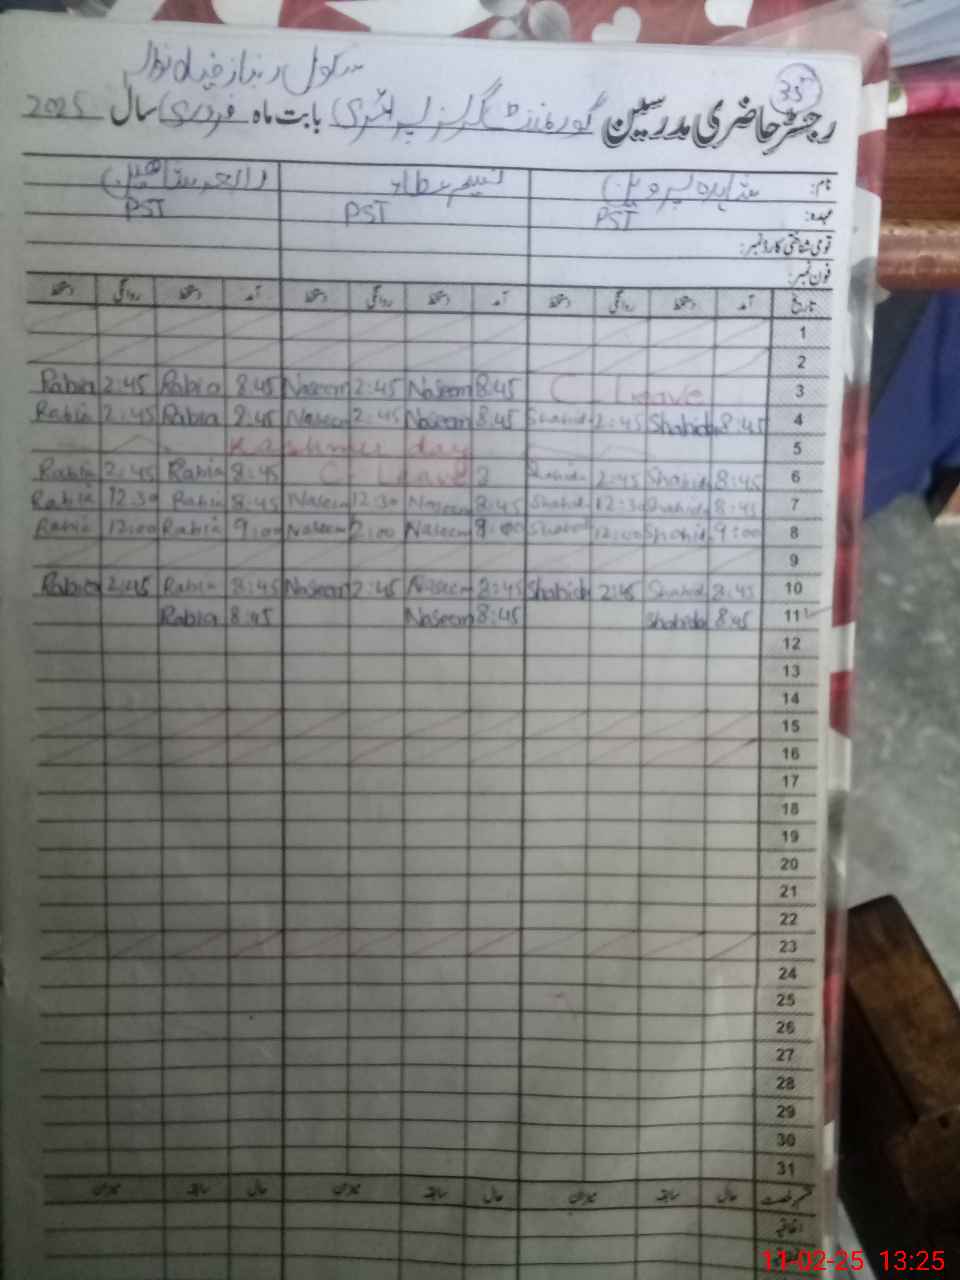 35
رجسٹر حاضری مدرسین گورنمنٹ گرلز پرائمری بابت ماہ فروری سال 2025
نام: شاہدہ پروین نسیم عطاء رابعہ شاھین
عہدہ: PST PST PST
قومی شناختی کارڈ نمبر:
فون نمبر:
تاریخ آمد دستخط روانگی دستخط آمد دستخط روانگی دستخط آمد دستخط روانگی دستخط
1
2
Rabia 2:45 Rabia 8:45 Naseem 2:45 Naseem 8:45 C Leave 3
Rabia 2:45 Rabia 8:45 Naseem 2:45 Naseem 8:45 Shahida 2:45 Shahida 8:45 4
Kashmir day 5
Rabia 2:45 Rabia 8:45 C Leave Shahida 2:45 Shahida 8:45 6
Rabia 12:30 Rabia 8:45 Naseem 12:30 Naseem 8:45 Shahida 12:30 Shahida 8:45 7
Rabia 12:00 Rabia 9:00 Naseem 12:00 Naseem 9:00 Shahida 12:00 Shahida 9:00 8
9
Rabia 2:45 Rabia 8:45 Naseem 2:45 Naseem 8:45 Shahida 2:45 Shahida 8:45 10
Rabia 8:45 Naseem 8:45 Shahida 8:45 11
12
13
14
15
16
17
18
19
20
21
22
23
24
25
26
27
28
29
30
31
قسم رخصت حال سابقہ میزان حال سابقہ میزان حال سابقہ میزان
اتفاقیہ
11-02-25 13:25